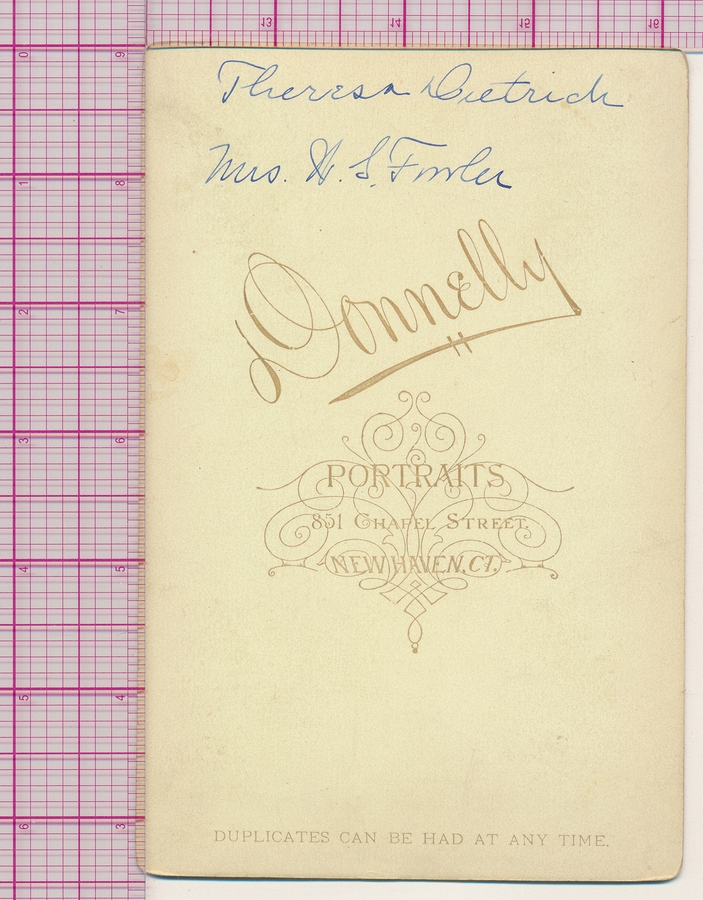 13 14 15 16
0 9
Theresa Dietrich
Mrs. H. S. Fowler
1 8
Donnelly
2 7
3 6
PORTRAITS
851 CHAPEL STREET.
NEW HAVEN, CT.
4 5
5 4
6 3
DUPLICATES CAN BE HAD AT ANY TIME.